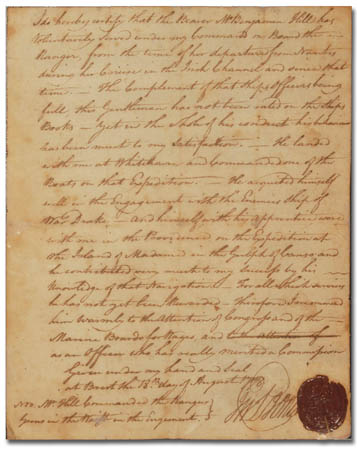 I do hereby certify that the Bearer Mr Benjamin Hill has
Voluntarily served under my Command on Board the
Ranger, from the time of her departure from Nantes
during her Cruise in the Irish Channel and since that
time. — The Complement of that Ships Officers being
full this Gentleman has not been rated on the Ships
Books — yet in the whole of his conduct his behaviour
has been much to my Satisfaction. — He landed
with me at Whitehaven and Commanded one of the
Boats on that Expedition. — He acquitted himself
well in the Engagement with the Enemies Ship of
War Drake. — And himself with his Apprentice were
with me in the Providence on the Expedition at
the Island of Madame in the Gulph of Canso and
he contributed very much to my Success by his
Knowledge of that Navigation. — For all which services
he has not yet been Rewarded — Therefore I recommend
him warmly to the Attention of Congress and of the
Marine Board of and
as an Officer who has really merited a Commission
Given under my hand and Seal
at Brest the 18th day of August
N.B. Mr. Hill Commanded the
Guns in the Waist in the Engagement.